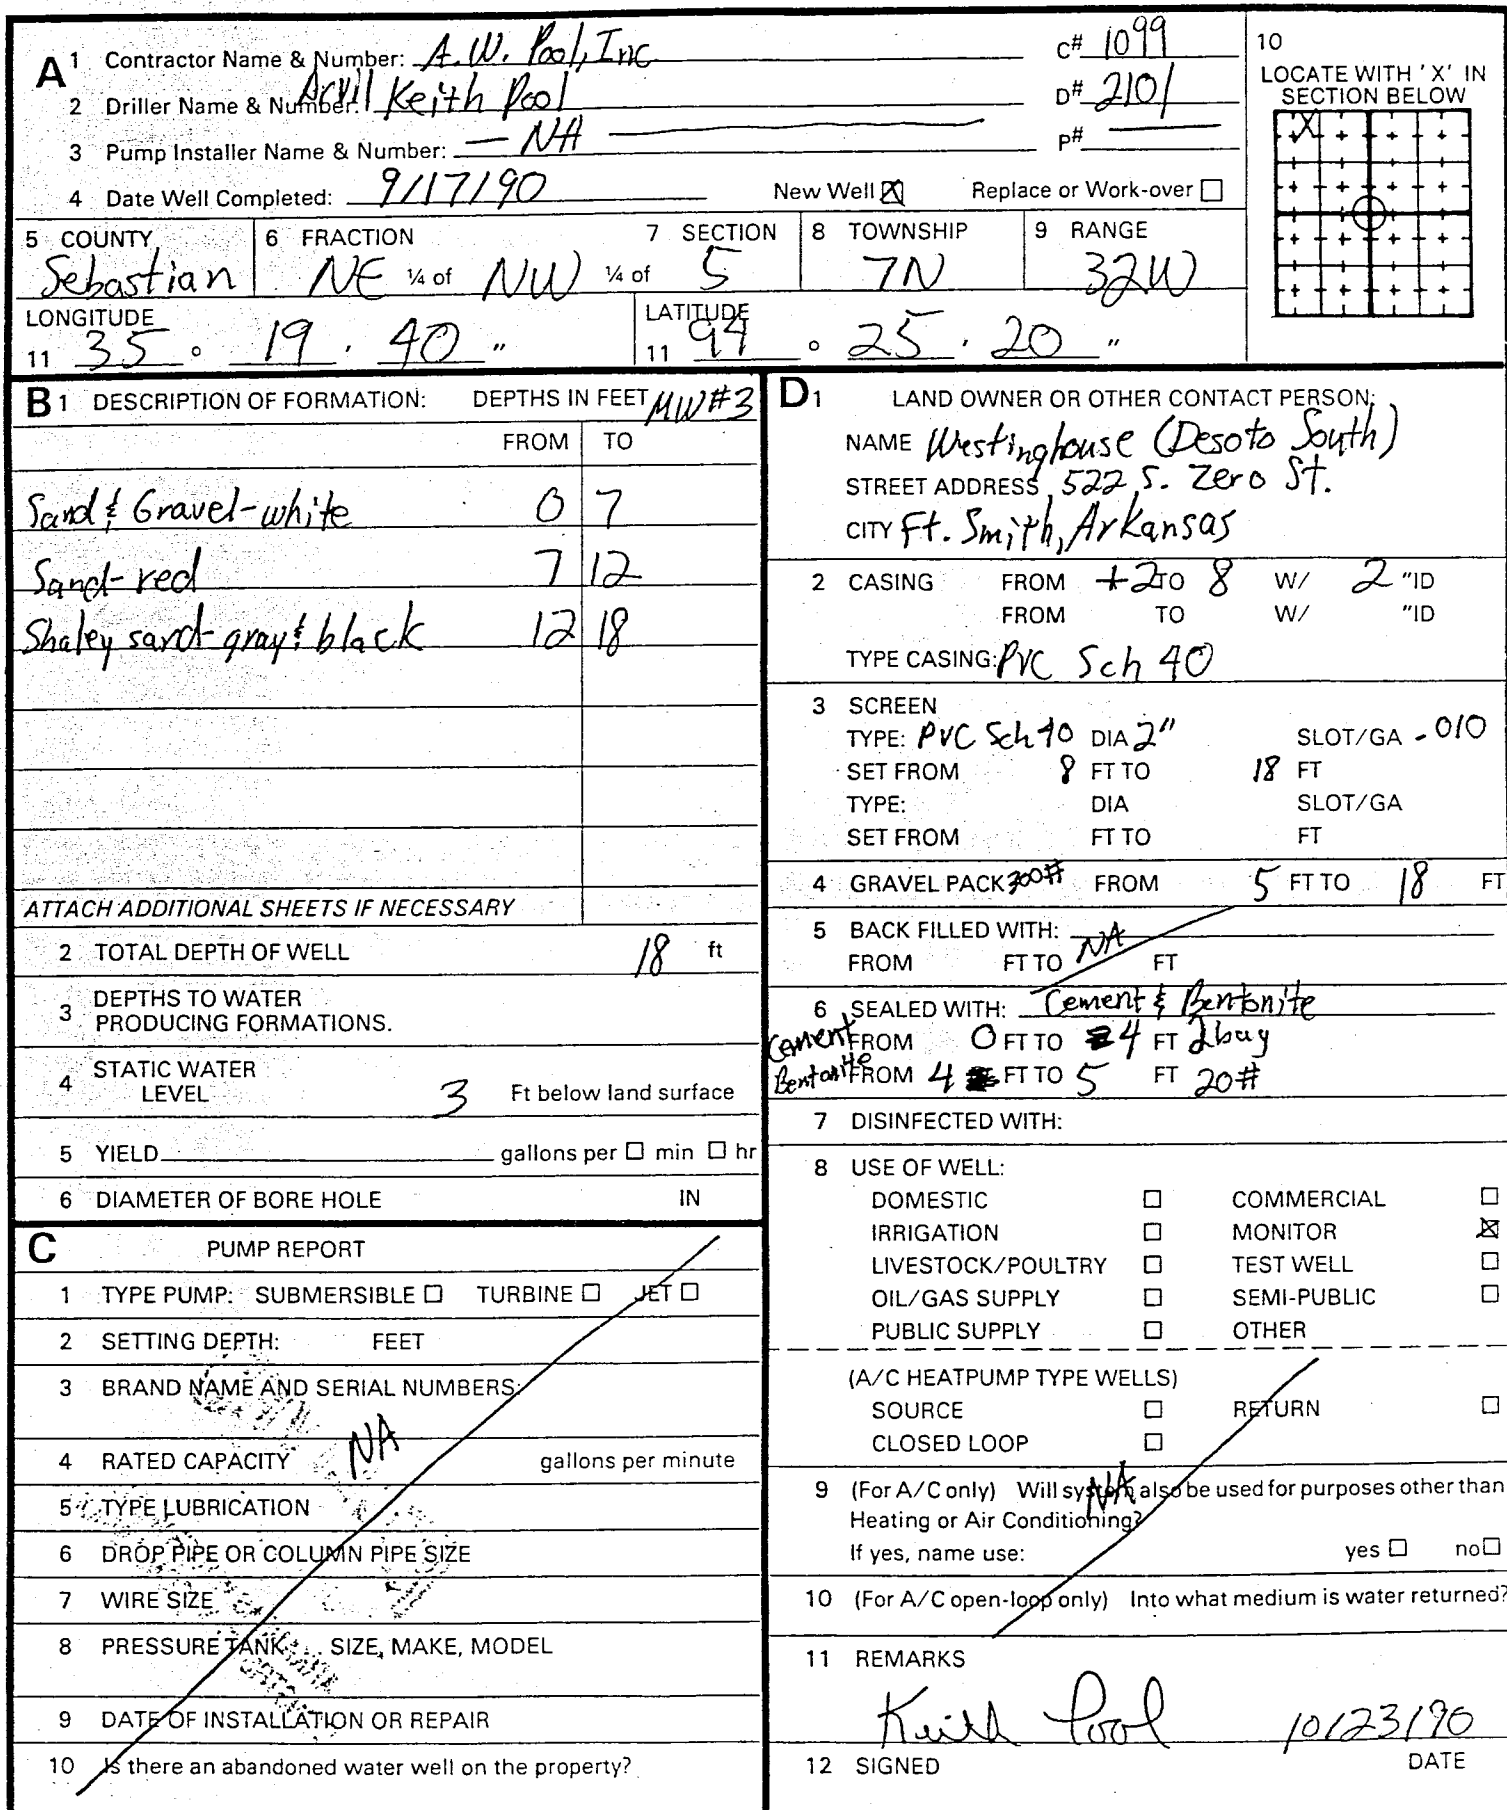 A 1 Contractor Name & Number: A.W. Pool, Inc C# 1099
2 Driller Name & Number: Arvil Keith Pool D# 2101
3 Pump Installer Name & Number: — NA — P# —
4 Date Well Completed: 9/17/90 New Well ☒ Replace or Work-over ☐
10
LOCATE WITH 'X' IN
SECTION BELOW
X
5 COUNTY 6 FRACTION 7 SECTION 8 TOWNSHIP 9 RANGE
Sebastian NE ¼ of NW ¼ of 5 7N 32W
LONGITUDE LATITUDE
11 35 ° 19 ' 40 " 11 94 ° 25 ' 20 "
B 1 DESCRIPTION OF FORMATION: DEPTHS IN FEET MW#3
FROM TO
Sand & Gravel-white 0 7
Sand-red 7 12
Shaley sand-gray & black 12 18
ATTACH ADDITIONAL SHEETS IF NECESSARY
2 TOTAL DEPTH OF WELL 18 ft
3 DEPTHS TO WATER
PRODUCING FORMATIONS.
4 STATIC WATER
LEVEL 3 Ft below land surface
5 YIELD gallons per ☐ min ☐ hr
6 DIAMETER OF BORE HOLE IN
C PUMP REPORT
1 TYPE PUMP: SUBMERSIBLE ☐ TURBINE ☐ JET ☐
2 SETTING DEPTH: FEET
3 BRAND NAME AND SERIAL NUMBERS:
NA
4 RATED CAPACITY gallons per minute
5 TYPE LUBRICATION
6 DROP PIPE OR COLUMN PIPE SIZE
7 WIRE SIZE
8 PRESSURE TANK SIZE, MAKE, MODEL
9 DATE OF INSTALLATION OR REPAIR
10 Is there an abandoned water well on the property?
D 1 LAND OWNER OR OTHER CONTACT PERSON:
NAME Westinghouse (Desoto South)
STREET ADDRESS 522 S. Zero St.
CITY Ft. Smith, Arkansas
2 CASING FROM +2 TO 8 W/ 2 "ID
FROM TO W/ "ID
TYPE CASING: PVC Sch 40
3 SCREEN
TYPE: PVC Sch 40 DIA 2" SLOT/GA .010
SET FROM 8 FT TO 18 FT
TYPE: DIA SLOT/GA
SET FROM FT TO FT
4 GRAVEL PACK 300# FROM 5 FT TO 18 FT
5 BACK FILLED WITH: NA
FROM FT TO FT
6 SEALED WITH: Cement & Bentonite
Cement FROM 0 FT TO 4 FT 2 bag
Bentonite FROM 4 FT TO 5 FT 20#
7 DISINFECTED WITH:
8 USE OF WELL:
DOMESTIC ☐ COMMERCIAL ☐
IRRIGATION ☐ MONITOR ☒
LIVESTOCK/POULTRY ☐ TEST WELL ☐
OIL/GAS SUPPLY ☐ SEMI-PUBLIC ☐
PUBLIC SUPPLY ☐ OTHER
(A/C HEATPUMP TYPE WELLS)
SOURCE ☐ RETURN ☐
CLOSED LOOP ☐
NA
9 (For A/C only) Will system also be used for purposes other than
Heating or Air Conditioning?
If yes, name use: yes ☐ no ☐
10 (For A/C open-loop only) Into what medium is water returned?
11 REMARKS
Keith Pool 10/23/90
12 SIGNED DATE